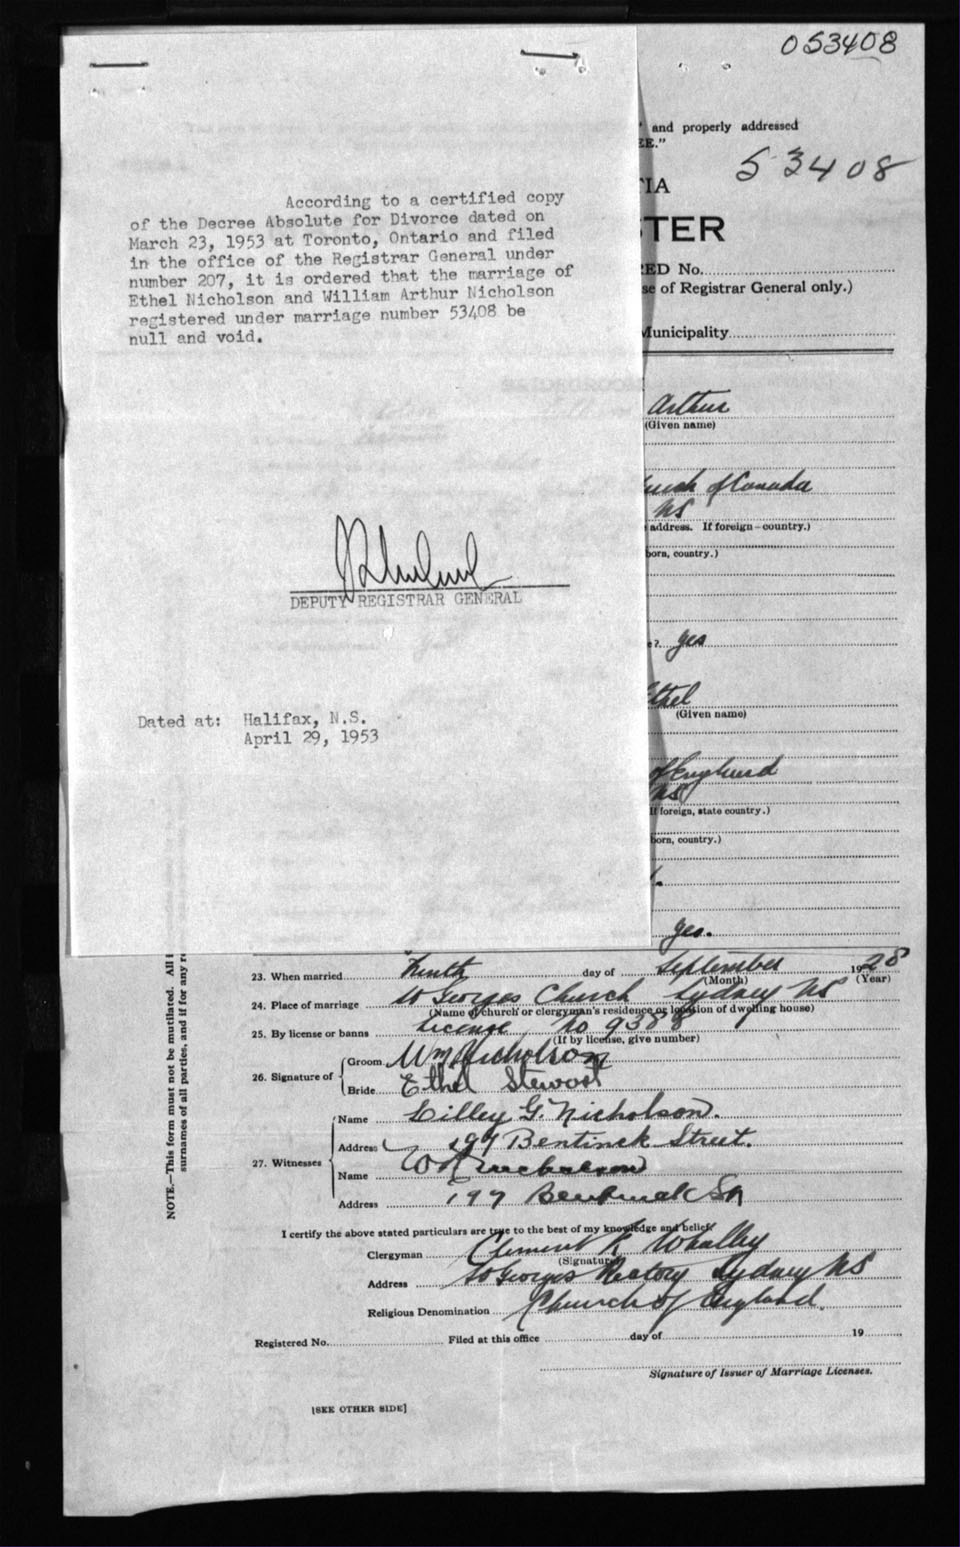 053408
" and properly addressed
EE."
53408
TIA
TER
According to a certified copy
of the Decree Absolute for Divorce dated on
March 23, 1953 at Toronto, Ontario and filed
in the office of the Registrar General under
number 207, it is ordered that the marriage of
Ethel Nicholson and William Arthur Nicholson
registered under marriage number 53408 be
null and void.
RED No.
se of Registrar General only.)
Municipality
Arthur
(Given name)
urch of Canada
NS
address. If foreign—country.)
born, country.)
DEPUTY REGISTRAR GENERAL
e? yes
Ethel
(Given name)
Dated at: Halifax, N.S.
April 29, 1953
of England
NS
If foreign, state country.)
born, country.)
yes.
NOTE.—This form must not be mutilated. All i
surnames of all parties, and if for any re
23. When married Tenth day of September 1928
(Month) (Year)
24. Place of marriage St Georges Church Sydney NS
(Name of church or clergyman's residence or location of dwelling house)
25. By license or banns License No 9388
(If by license, give number)
26. Signature of Groom Wm Nicholson
Bride Ethel Stewart
27. Witnesses Name Lilley G. Nicholson.
Address 197 Bentinck Street.
Name W Nicholson
Address 197 Bentinck St
I certify the above stated particulars are true to the best of my knowledge and belief.
Clergyman Clement K Whalley
(Signature)
Address St Georges Rectory Sydney NS
Religious Denomination Church of England.
Registered No. Filed at this office day of 19
Signature of Issuer of Marriage Licenses.
[SEE OTHER SIDE]